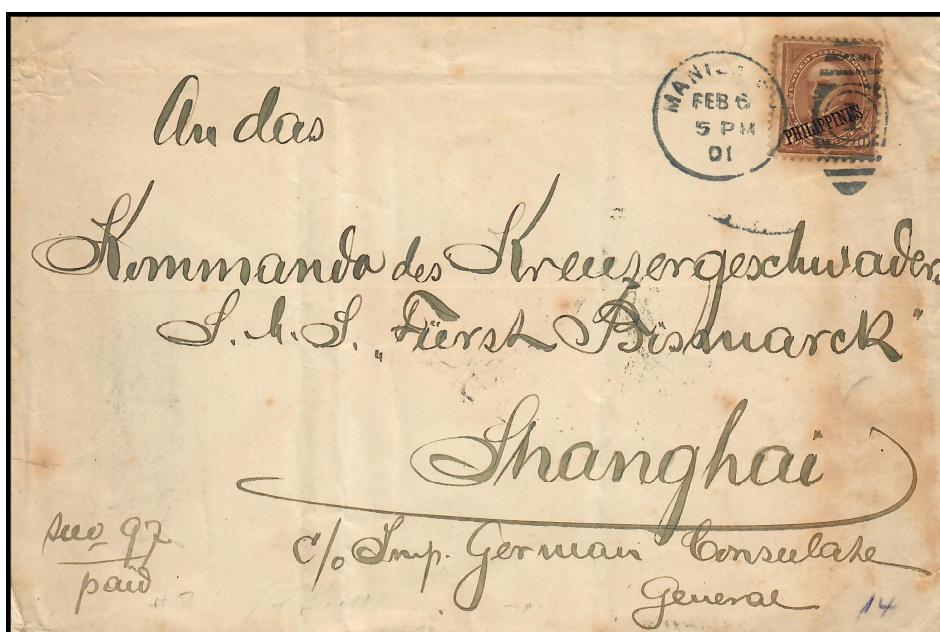 MANILA
FEB 6
5 PM
01
PHILIPPINES
An das
Kommando des Kreuzergeschwaders
S. M. S. „Fürst Bismarck"
Shanghai
c/o Imp. German Consulate
General
97
paid
14